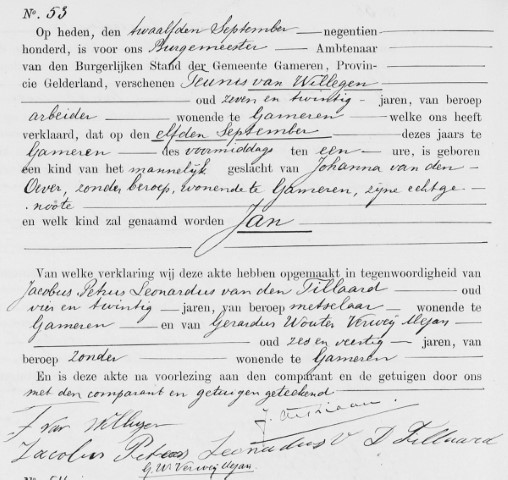 No. 53
Op heden, den twaalfden September negentien
honderd, is voor ons Burgemeester Ambtenaar
van den Burgerlijken Stand der Gemeente Gameren, Provin-
cie Gelderland, verschenen Teunis van Willegen
oud zeven en twintig jaren, van beroep
arbeider wonende te Gameren welke ons heeft
verklaard, dat op den elfden September dezes jaars te
Gameren des voormiddags ten een ure, is geboren
een kind van het mannelijk geslacht van Johanna van den
Oever, zonder beroep, wonende te Gameren, zijne echtge-
noote
en welk kind zal genaamd worden Jan
Van welke verklaring wij deze akte hebben opgemaakt in tegenwoordigheid van
Jacobus Petrus Leonardus van den Tillaard oud
vier en twintig jaren, van beroep metselaar wonende te
Gameren en van Gerardus Wouter Verweij Mejan
oud zes en veertig jaren, van
beroep zonder wonende te Gameren
En is deze akte na voorlezing aan den comparant en de getuigen door ons
met den comparant en getuigen geteekend
T van Willegen
Jacobus Petrus Leonardus v D Tillaard
G. W. Verweij Mejan